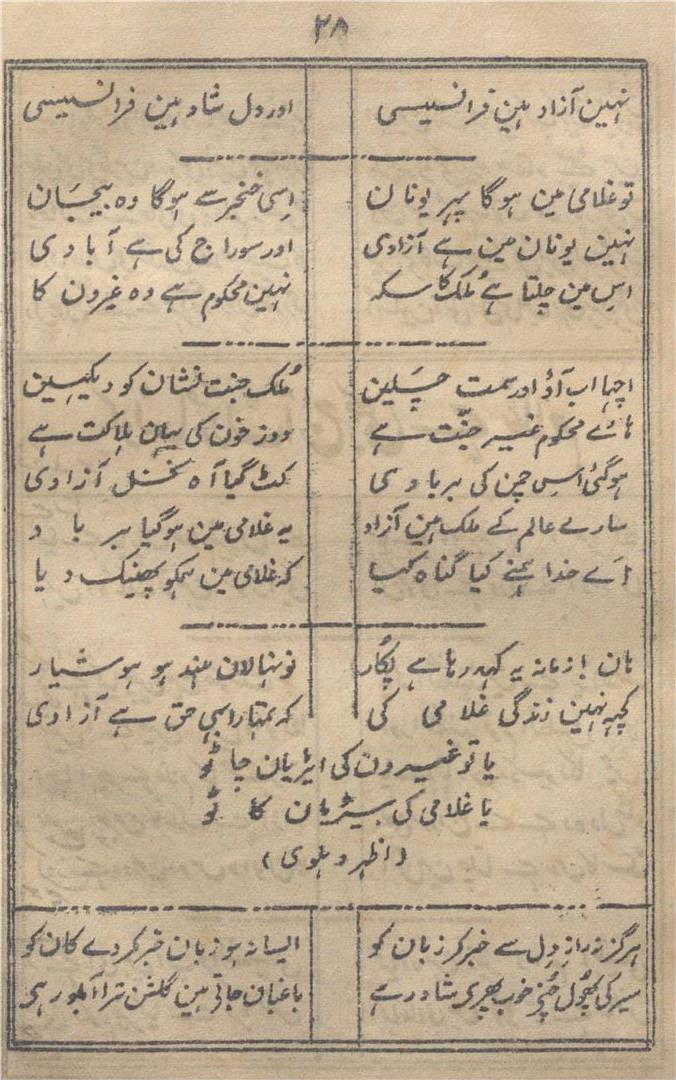 ۲۸
نہین آزاد ہین فرانسیسی اور دل شاد ہین فرانسیسی
تو غلامی مین ہوگا پہر یونان اِسی خنجر سے ہوگا وہ بیجَان
نہین یونان مین ہے آزادی اور سوراج کی ہے آبادی
اس مین چلتا ہے مُلک کا سکہ نہین محکوم ہے وہ غیرون کا
اچہا اب آؤ اور سمت چَلین مُلک جنت نشان کو دیکہین
ہائے محکوم غیر جنّت ہے روز خون کی یہان ہلاکت ہے
ہو گئی اسِ چمن کی بربادی کٹ گیا آہ نخل آزادی
سارے عالم کے ملک ہین آزاد یہ غلامی مین ہوگیا برباد
اَے خدا ہمنے کیا گناہ کیا کہ غلامی مین ہمکو پھینک دیا
ہان زمانہ یہ کہہ رہا ہے پکُار نونہالان ہند ہو ہوشیار
کچہ نہین زندگی غلامی کی کہ تمہارا ہی حق ہے آزادی
یا تو غیرون کی ایڑیان چاٹو
یا غلامی کی بیڑیان کاٹو
(اظہر دہلوی)
ہرگز نہ رازِ دِل سے خبر کر زبان کو ایسا نہ ہو زبان خبر کردے کان کو
سیر کی پھُول چُنے خوب پھری شاد رہے باغبان جاتی ہین گلشن ترا آباد رہی